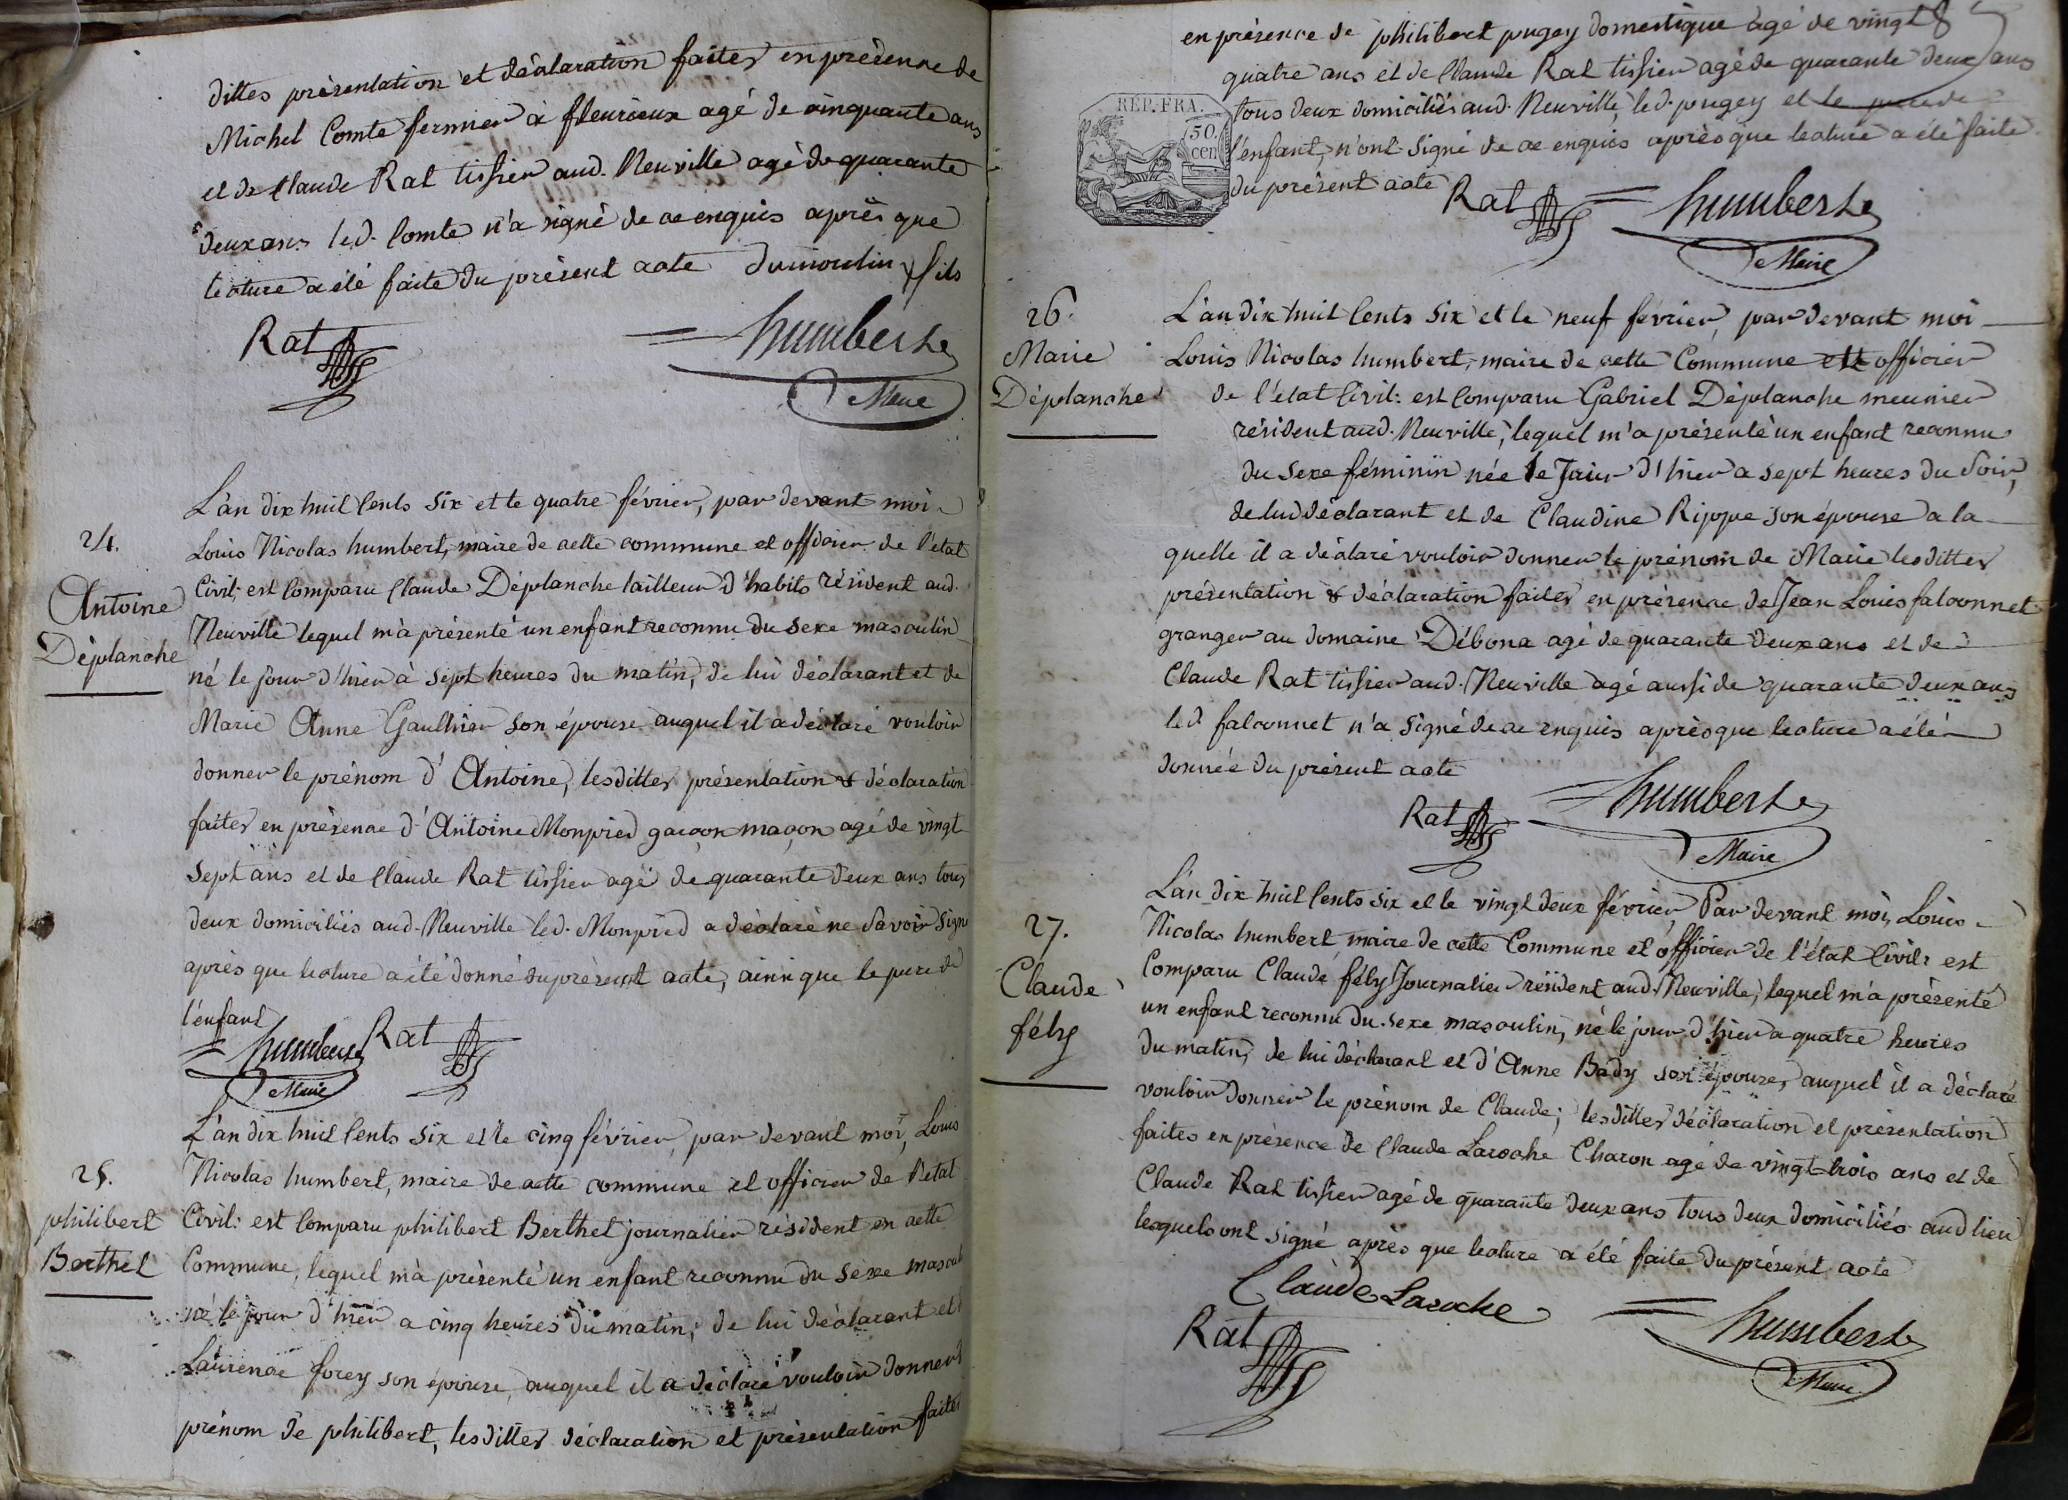 dittes présentation et déclaration faites en présenne de
Michel Comte fermier à fleurieux agé de cinquante ans
et de Claude Rat tissier aud. Neuville agé de quarante
deux ans led. Comte n'a signé de ce enquis après que
lecture a été faite du présent acte dumoulin fils
Rat
humbert
Maire
24.
Antoine
Déplanche
L'an dix huit Cents six et le quatre février, par devant moi
Louis Nicolas humbert, maire de cette commune et officier de l'état
Civil; est Comparu Claude Déplanche tailleur d'habits résident aud.
Neuville lequel m'a présenté un enfant reconnu du sexe masculin
né le jour d'hier à sept heures du matin, de lui déclarant et de
Marie Anne Gaulthier son épouse auquel il a déclaré vouloir
donner le prénom d'Antoine, lesdittes présentation & déclaration
faites en présence d'Antoine Monpied garçon maçon agé de vingt
sept ans et de Claude Rat tissier agé de quarante deux ans tous
deux domiciliés aud. Neuville led. Monpied a déclaré ne savoir signe
après que lecture a été donné du présent acte, ainsi que le pere de
l'enfant
humbert Rat
Maire
25.
philibert
Berthet
L'an dix huit Cents six et le cinq février, par devant moi, Louis
Nicolas humbert, maire de cette commune et officier de l'état
Civil: est Comparu philibert Berthet journalier résident en cette
Commune, lequel m'a présenté un enfant reconnu du sexe mascul
né le jour d'hier a cinq heures du matin, de lui déclarant et
Laurence forey son épouse, auquel il a déclaré vouloir donner
prénom de philibert, lesdittes déclaration et présentation faites
en présence de philibert pugey domestique agé de vingt
quatre ans et de Claude Rat tissier agé de quarante deux ans
tous deux domiciliés aud. Neuville, led. pugey et le pere de
l'enfant, n'ont signé de ce enquis après que lecture a été faite
du présent acte
RÉP. FRA.
50.
cen
Rat
humbert
Maire
26.
Marie
Déplanche
L'an dix huit Cents six et le neuf février, par devant moi
Louis Nicolas humbert, maire de cette Commune et officier
de l'état Civil: est Comparu Gabriel Déplanche meunier
résident aud. Neuville, lequel m'a présenté un enfant reconnu
du sexe féminin née le Jour d'hier a sept heures du Soir,
de lud déclarant et de Claudine Rippe son épouse a la
quelle il a déclaré vouloir donner le prénom de Marie lesdittes
présentation & déclaration faites en présence de Jean Louis falconnet
granger au domaine Débona agé de quarante deux ans et de
Claude Rat tissier aud. Neuville agé aussi de quarante deux ans
led falconnet n'a signé de ce enquis après que lecture a été
donnée du présent acte
Rat
humbert
Maire
27.
Claude
fély
L'an dix huit Cents six et le vingt deux février Par devant moi, Louis
Nicolas humbert maire de cette Commune et officier de l'état Civil: est
Comparu Claude fély Journalier résident aud. Neuville, lequel m'a présenté
un enfant reconnu du sexe masculin, né le jour d'hier a quatre heures
du matin, de lui déclarant et d'Anne Bady son épouse, auquel il a déclaré
vouloir donner le prénom de Claude; lesdittes déclaration et présentation
faites en présence de Claude Laroche Charon agé de vingt-trois ans et de
Claude Rat tissier agé de quarante deux ans tous deux domiciliés aud lieu
lesquels ont signé après que lecture a été faite du présent acte
Claude Laroche
Rat
humbert
Maire